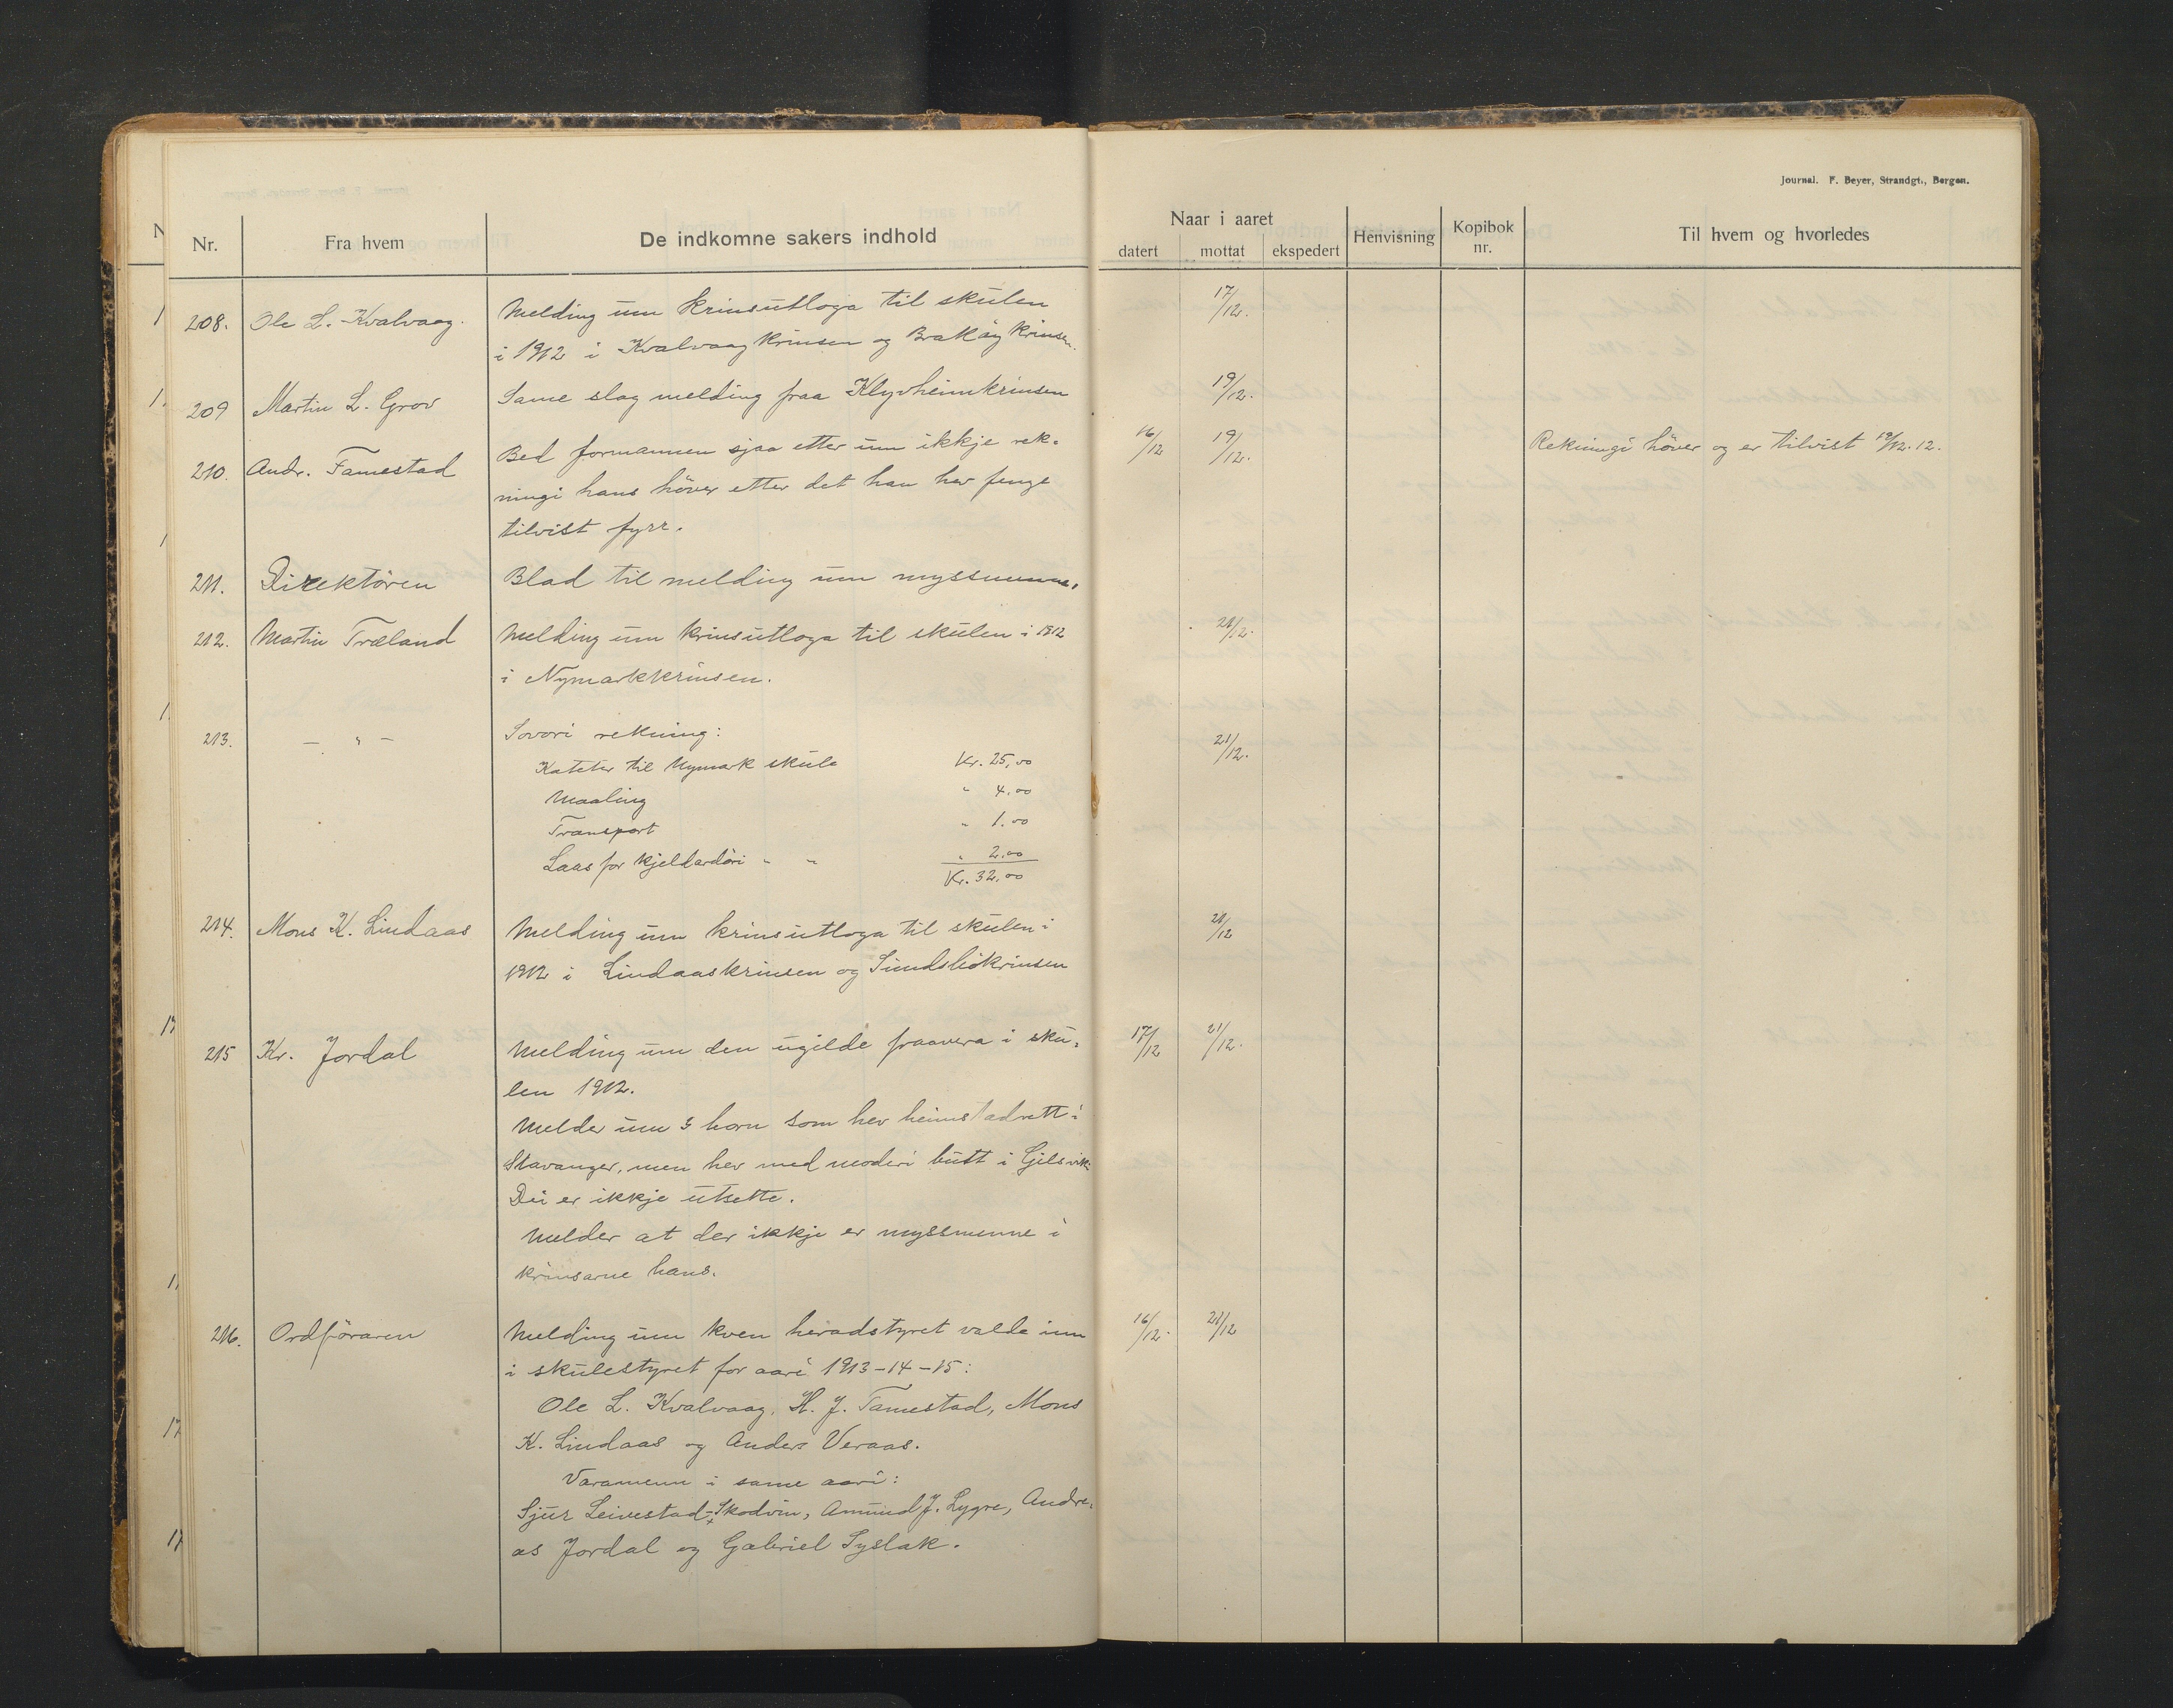 Journal. F. Beyer, Strandgt., Bergen.
Nr. Fra hvem De indkomne sakers indhold Naar i aaret Henvisning Kopibok nr. Til hvem og hvorledes
datert mottat ekspedert
208. Ole L. Kvalvaag. Melding um krinsutloga til skulen 17/12.
i 1912 i Kvalvaagkrinsen og Brakøykrinsen.
209 Martin L. Grov Same slag melding fraa Klyvheimkrinsen 19/12.
210. Andr. Tamestad Bed formannen sjaa etter um ikkje rek- 16/12 19/12. Rekningi höver og er tilvist 19/12. 12.
ningi hans höver etter det han hev fenge
tilvist fyrr.
211. Direktören Blad til melding um myssmenne.
212. Martin Træland Melding um krinsutloga til skulen i 1912 21/12.
i Nymarkkrinsen.
213. — " — Sovori rekning: 21/12.
Kateter til Nymark skule Kr. 25,00
Maaling " 4.00
Transport " 1.00
Laas for kjellardöri " " " 2,00
Kr. 32,00
214. Mons K. Lindaas Melding um krinsutloga til skulen i 21/12
1912 i Lindaaskrinsen og Sundsliökrinsen
215 Kr. Jordal Melding um den ugilde fraavera i sku- 17/12 21/12.
len 1912.
Melder um 3 born som hev heimstadrett i
Stavanger, men hev med moderi butt i Gilsvik.
Dei er ikkje utsette.
Melder at der ikkje er myssmenne i
krinsarne hans.
216. Ordföraren Melding um kven heradstyret valde inn 16/12. 21/12
i skulestyret for aari 1913-14-15:
Ole L. Kvalvaag, H. J. Tamestad, Mons
K. Lindaas og Anders Veraas.
Varamenn i same aari:
Sjur Leivestad-Skodvin, Amund J. Lygre, Andre-
as Jordal og Gabriel Syslak.